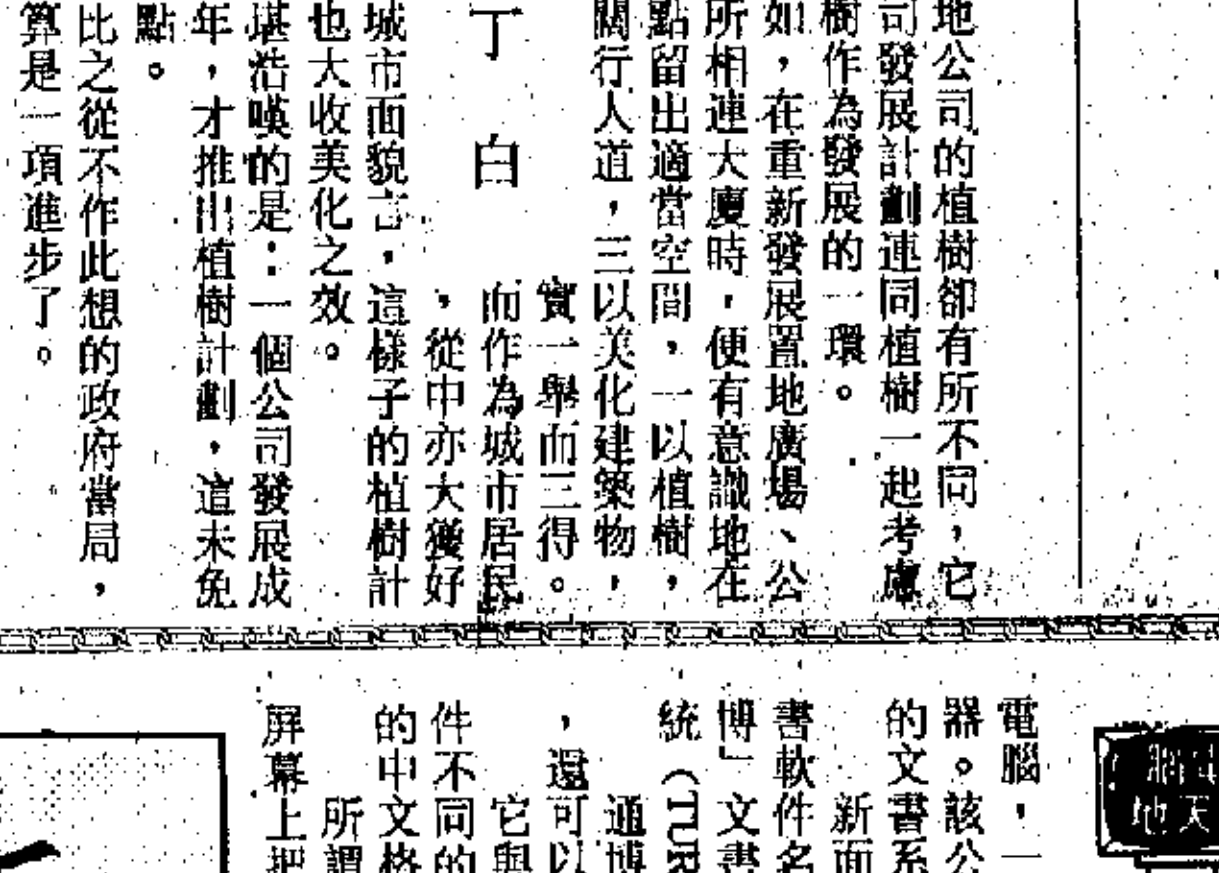 地公司的植樹卻有所不同，它
司發展計劃連同植樹一起考慮
樹作為發展的一環。
如，在重新發展置地廣場、公
所相連大廈時，便有意識地在
點留出適當空間，一以植樹，
闊行人道，三以美化建築物，
實一舉而三得。
丁白
而作為城市居民
，從中亦大獲好
城市面貌言，這樣子的植樹計
也大收美化之效。
堪浩嘆的是：一個公司發展成
年，才推出植樹計劃，這未免
點。
比之從不作此想的政府當局，
算是一項進步了。
腦
地天
電腦，一
器。該公
的文書系
新面
書軟件名
博」文書
統（TUR
通博
，還可以
它與
件不同的
的中文格
所謂
屏幕上把